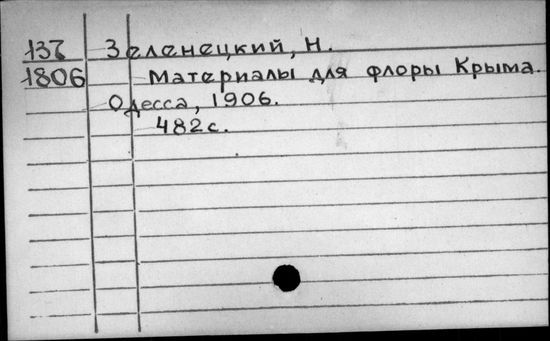 Зеленецкий, Н.
1806 Материалы для флоры Крыма.
Одесса, 1906.
482 с.